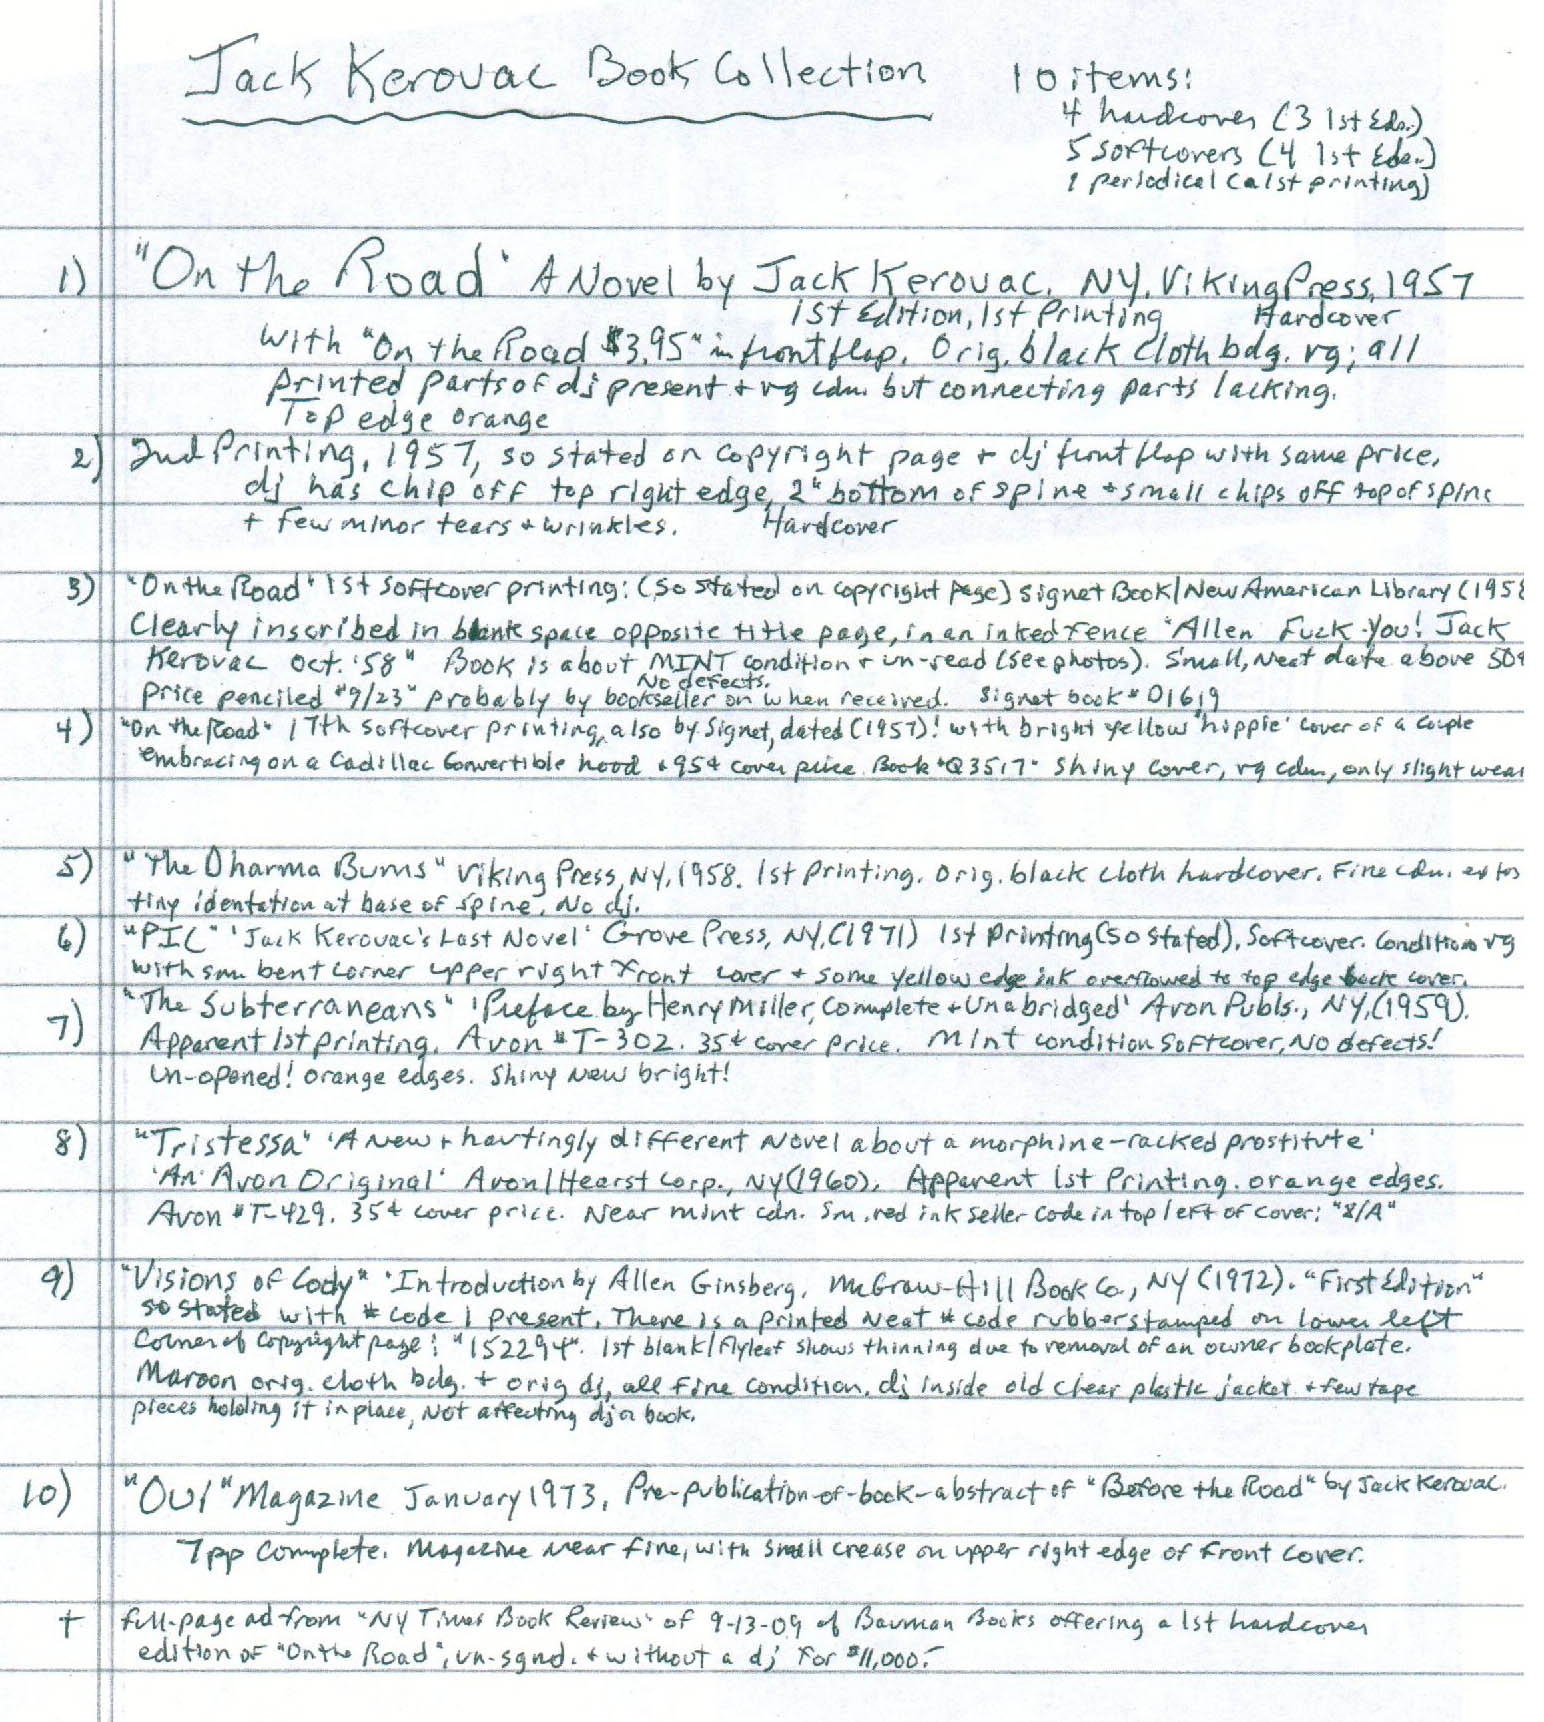 Jack Kerouac Book Collection 10 items:
4 hardcover (3 1st Eds.)
5 softcovers (4 1st Eds.)
1 periodical (a 1st printing)
1) "On the Road" A Novel by Jack Kerouac. NY, Viking Press, 1957
1st Edition, 1st Printing Hardcover
With "On the Road $3.95" in front flap. Orig. black cloth bdg. vg; all
printed parts of dj present + vg cdn. but connecting parts lacking.
Top edge orange
2) 2nd Printing, 1957, so stated on copyright page + dj front flap with same price,
dj has chip off top right edge, 2" bottom of spine + small chips off top of spine
+ few minor tears + wrinkles. Hardcover
3) "On the Road" 1st softcover printing: (so stated on copyright page) Signet Book/New American Library (1958
Clearly inscribed in blank space opposite title page, in an inked fence "Allen Fuck-you! Jack
Kerouac Oct. '58" Book is about MINT condition + un-read (see photos). Small, neat date above 50¢
No defects.
price penciled "9/23" probably by bookseller on when received. Signet book # D1619
4) "On the Road" 17th softcover printing, also by Signet, dated (1957)! with bright yellow 'hippie' cover of a couple
embracing on a Cadillac Convertible hood + 95¢ cover price. Book "Q3517" Shiny cover, vg cdn., only slight wear
5) "The Dharma Bums" Viking Press, NY, 1958. 1st Printing. Orig. black cloth hardcover. Fine cdn.
tiny identation at base of spine. No dj.
6) "PIC" 'Jack Kerouac's Last Novel' Grove Press, NY, (1971) 1st Printing (so stated), Softcover. Condition vg
with sm. bent corner upper right front cover + some yellow edge ink overflowed to top edge back cover.
7) "The Subterraneans" 'Preface by Henry Miller, Complete + Unabridged' Avon Publs., NY, (1959).
Apparent 1st Printing. Avon #T-302. 35¢ cover price. Mint condition Softcover, No defects!
Un-opened! orange edges. Shiny new bright!
8) "Tristessa" 'A New + hauntingly different novel about a morphine-racked prostitute'
'An Avon Original' Avon/Hearst Corp., NY (1960). Apparent 1st Printing. orange edges.
Avon #T-429. 35¢ cover price. Near mint cdn. Sm. red ink seller code in top left of cover: "8/A"
9) "Visions of Cody" 'Introduction by Allen Ginsberg. McGraw-Hill Book Co., NY (1972). "First Edition"
so stated with # code 1 present. There is a printed neat # code rubberstamped on lower left
Corner of copyright page: "152294". 1st blank/flyleaf shows thinning due to removal of an owner bookplate.
Maroon orig. cloth bdg. + orig dj, all fine condition, dj inside old clear plastic jacket + few tape
pieces holding it in place, not affecting dj or book.
10) "Oui" Magazine January 1973, Pre-publication-of-book-abstract of "Before the Road" by Jack Kerouac.
7pp Complete. Magazine near fine, with small crease on upper right edge of front cover.
+ full-page ad from "NY Times Book Review" of 9-13-09 of Bauman Books offering a 1st hardcover
edition of "On the Road", un-sgnd. + without a dj for $11,000.-